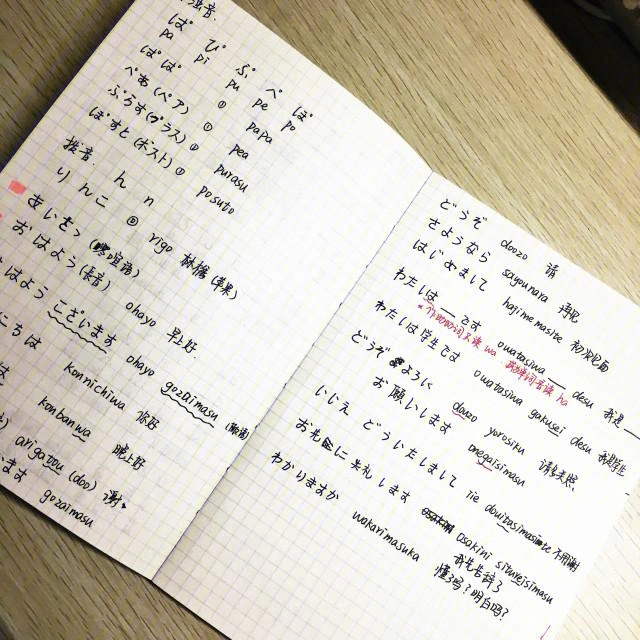 浊音.
ぱ ぴ ぷ ぺ ぽ
pa pi pu pe po
ぱぱ ① papa
ぺあ(ペア) ① pea
ぷらす(プラス) purasu
ぽすと(ポスト) ① posuto
拨音 ん n
りんご ⓪ rigo 林檎(苹果)
あいさつ (寒暄语)
おはよう(长音) ohayo 早上好.
はよう ございます ohayo gozaimasu (敬语)
にちは konnichiwa 你好
は konbanwa 晚上好
arigatou (doo) 谢.
います gozaimasu
どうぞ doozo 请
さようなら sayounara 再见
はじめまして hajimemasite 初次见面
わたしは___です watasiwa___ desu 我是___
わたしは学生です watasiwa gakusei desu 我是学生
どうぞ よろしく doozo yorosiku 请多关照.
お願いします onegaisimasu
いいえ どういたしまして iie douitasimasite 不用谢
お先に失礼します osakini siturei simasu
我先告辞了
わかりますか wakarimasuka 懂了吗?明白吗?